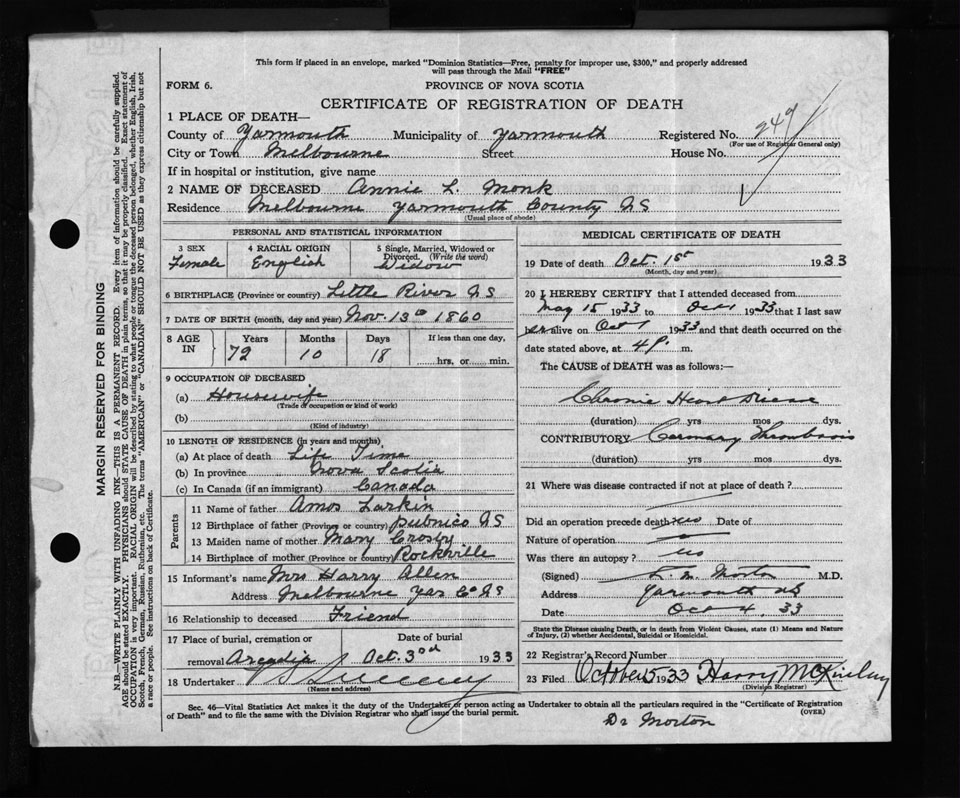 This form if placed in an envelope, marked "Dominion Statistics—Free, penalty for improper use, $300," and properly addressed
will pass through the Mail "FREE"
FORM 6.
PROVINCE OF NOVA SCOTIA
CERTIFICATE OF REGISTRATION OF DEATH
1 PLACE OF DEATH—
County of Yarmouth Municipality of Yarmouth Registered No. 249
(For use of Registrar General only)
City or Town Melbourne Street House No.
If in hospital or institution, give name
2 NAME OF DECEASED Annie L. Monk
Residence Melbourne Yarmouth County NS
(Usual place of abode)
PERSONAL AND STATISTICAL INFORMATION
3 SEX 4 RACIAL ORIGIN 5 Single, Married, Widowed or
Divorced. (Write the word)
Female English Widow
6 BIRTHPLACE (Province or country) Little River NS
7 DATE OF BIRTH (month, day and year) Nov. 13th 1860
8 AGE IN Years Months Days If less than one day,
72 10 18 hrs. or min.
9 OCCUPATION OF DECEASED
(a) Housewife
(Trade or occupation or kind of work)
(b)
(Kind of industry)
10 LENGTH OF RESIDENCE (in years and months)
(a) At place of death Life Time
(b) In province Nova Scotia
(c) In Canada (if an immigrant) Canada
Parents
11 Name of father Amos Larkin
12 Birthplace of father (Province or country) Pubnico NS
13 Maiden name of mother Mary Crosby
14 Birthplace of mother (Province or country) Rockville
15 Informant's name Mrs Harry Allen
Address Melbourne Yar Co NS
16 Relationship to deceased Friend
17 Place of burial, cremation or Date of burial
removal Arcadia Oct. 3rd 1933
18 Undertaker
(Name and address)
MEDICAL CERTIFICATE OF DEATH
19 Date of death Oct. 1st 1933
(Month, day and year)
20 I HEREBY CERTIFY that I attended deceased from
May 15 1933 to Oct 1 1933 that I last saw
her alive on Oct 1 1933 and that death occurred on
date stated above, at 4 P. m.
The CAUSE of DEATH was as follows:—
Chronic Heart Disease
(duration) yrs mos dys.
CONTRIBUTORY Coronary Thrombosis
(duration) yrs mos dys.
21 Where was disease contracted if not at place of death?
Did an operation precede death no Date of
Nature of operation
Was there an autopsy? no
(Signed) Morton M.D.
Address Yarmouth NS
Date Oct 4, 33
State the Disease causing Death, or in death from Violent Causes, state (1) Means and Nature
of Injury, (2) whether Accidental, Suicidal or Homicidal.
22 Registrar's Record Number
23 Filed October 5 1933 Harry McKinley
(Division Registrar)
Sec. 46—Vital Statistics Act makes it the duty of the Undertaker or person acting as Undertaker to obtain all the particulars required in the "Certificate of Registration
of Death" and to file the same with the Division Registrar who shall issue the burial permit. (OVER)
Dr Morton
MARGIN RESERVED FOR BINDING
N.B.—WRITE PLAINLY WITH UNFADING INK—THIS IS A PERMANENT RECORD. Every item of information should be carefully supplied.
AGE should be stated EXACTLY. PHYSICIANS should STATE CAUSE OF DEATH in plain terms, so that it may be properly classified. Exact statement of
OCCUPATION is very important. RACIAL ORIGIN will be described by stating to what people or tongue the deceased person belonged, whether English, Irish,
Scotch, French, German, Russian, Ruthenian, etc. The terms "AMERICAN" or "CANADIAN" SHOULD NOT BE USED as they express citizenship but not
a race or people. See instructions on back of Certificate.